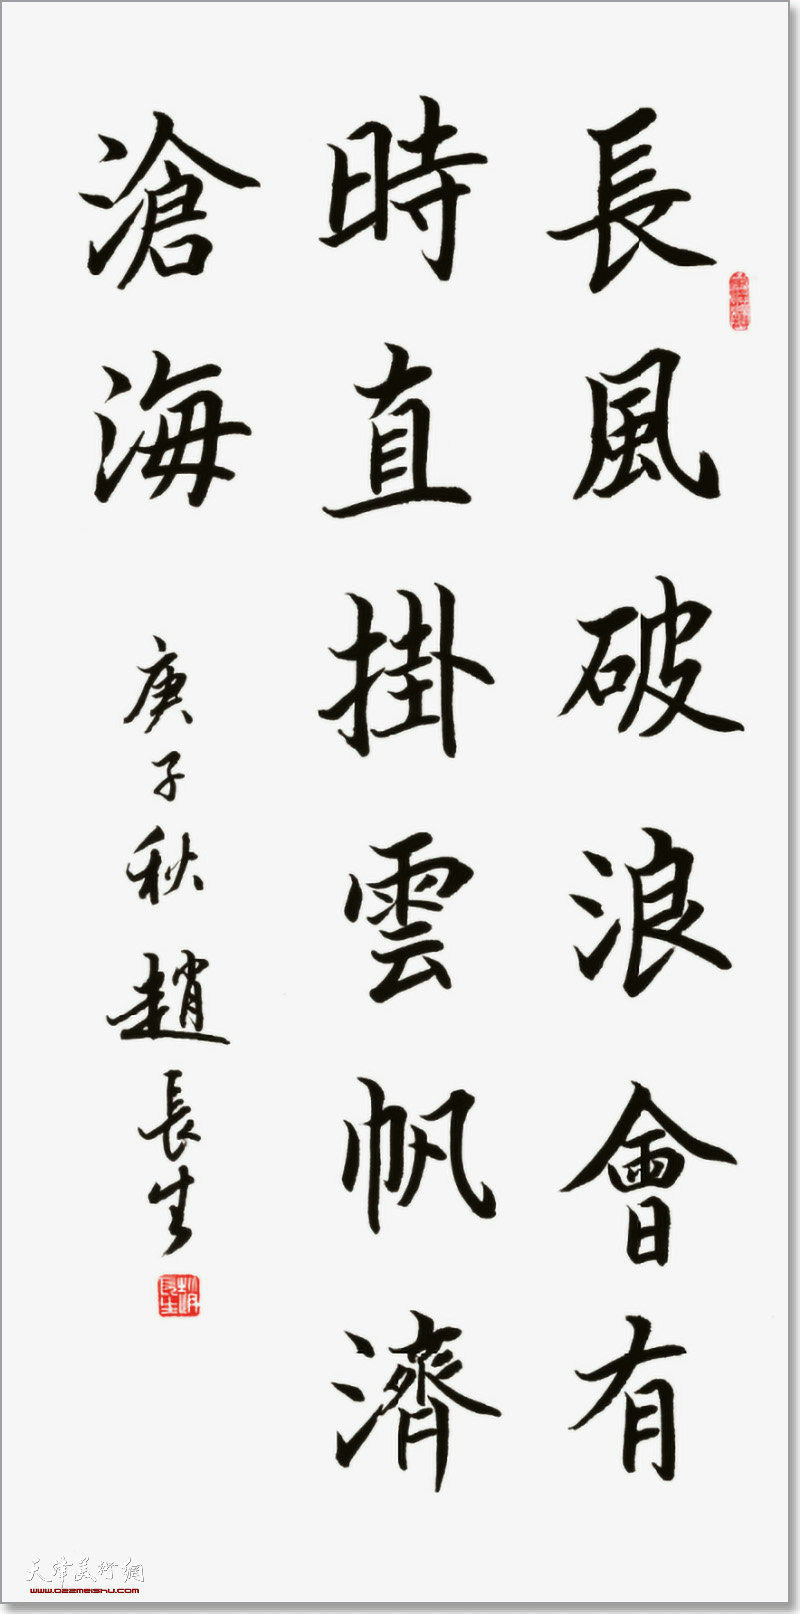 長風破浪會有
時直掛雲帆濟
滄海
庚子秋 趙長生
趙長生
天津美術網
www.022meishu.com